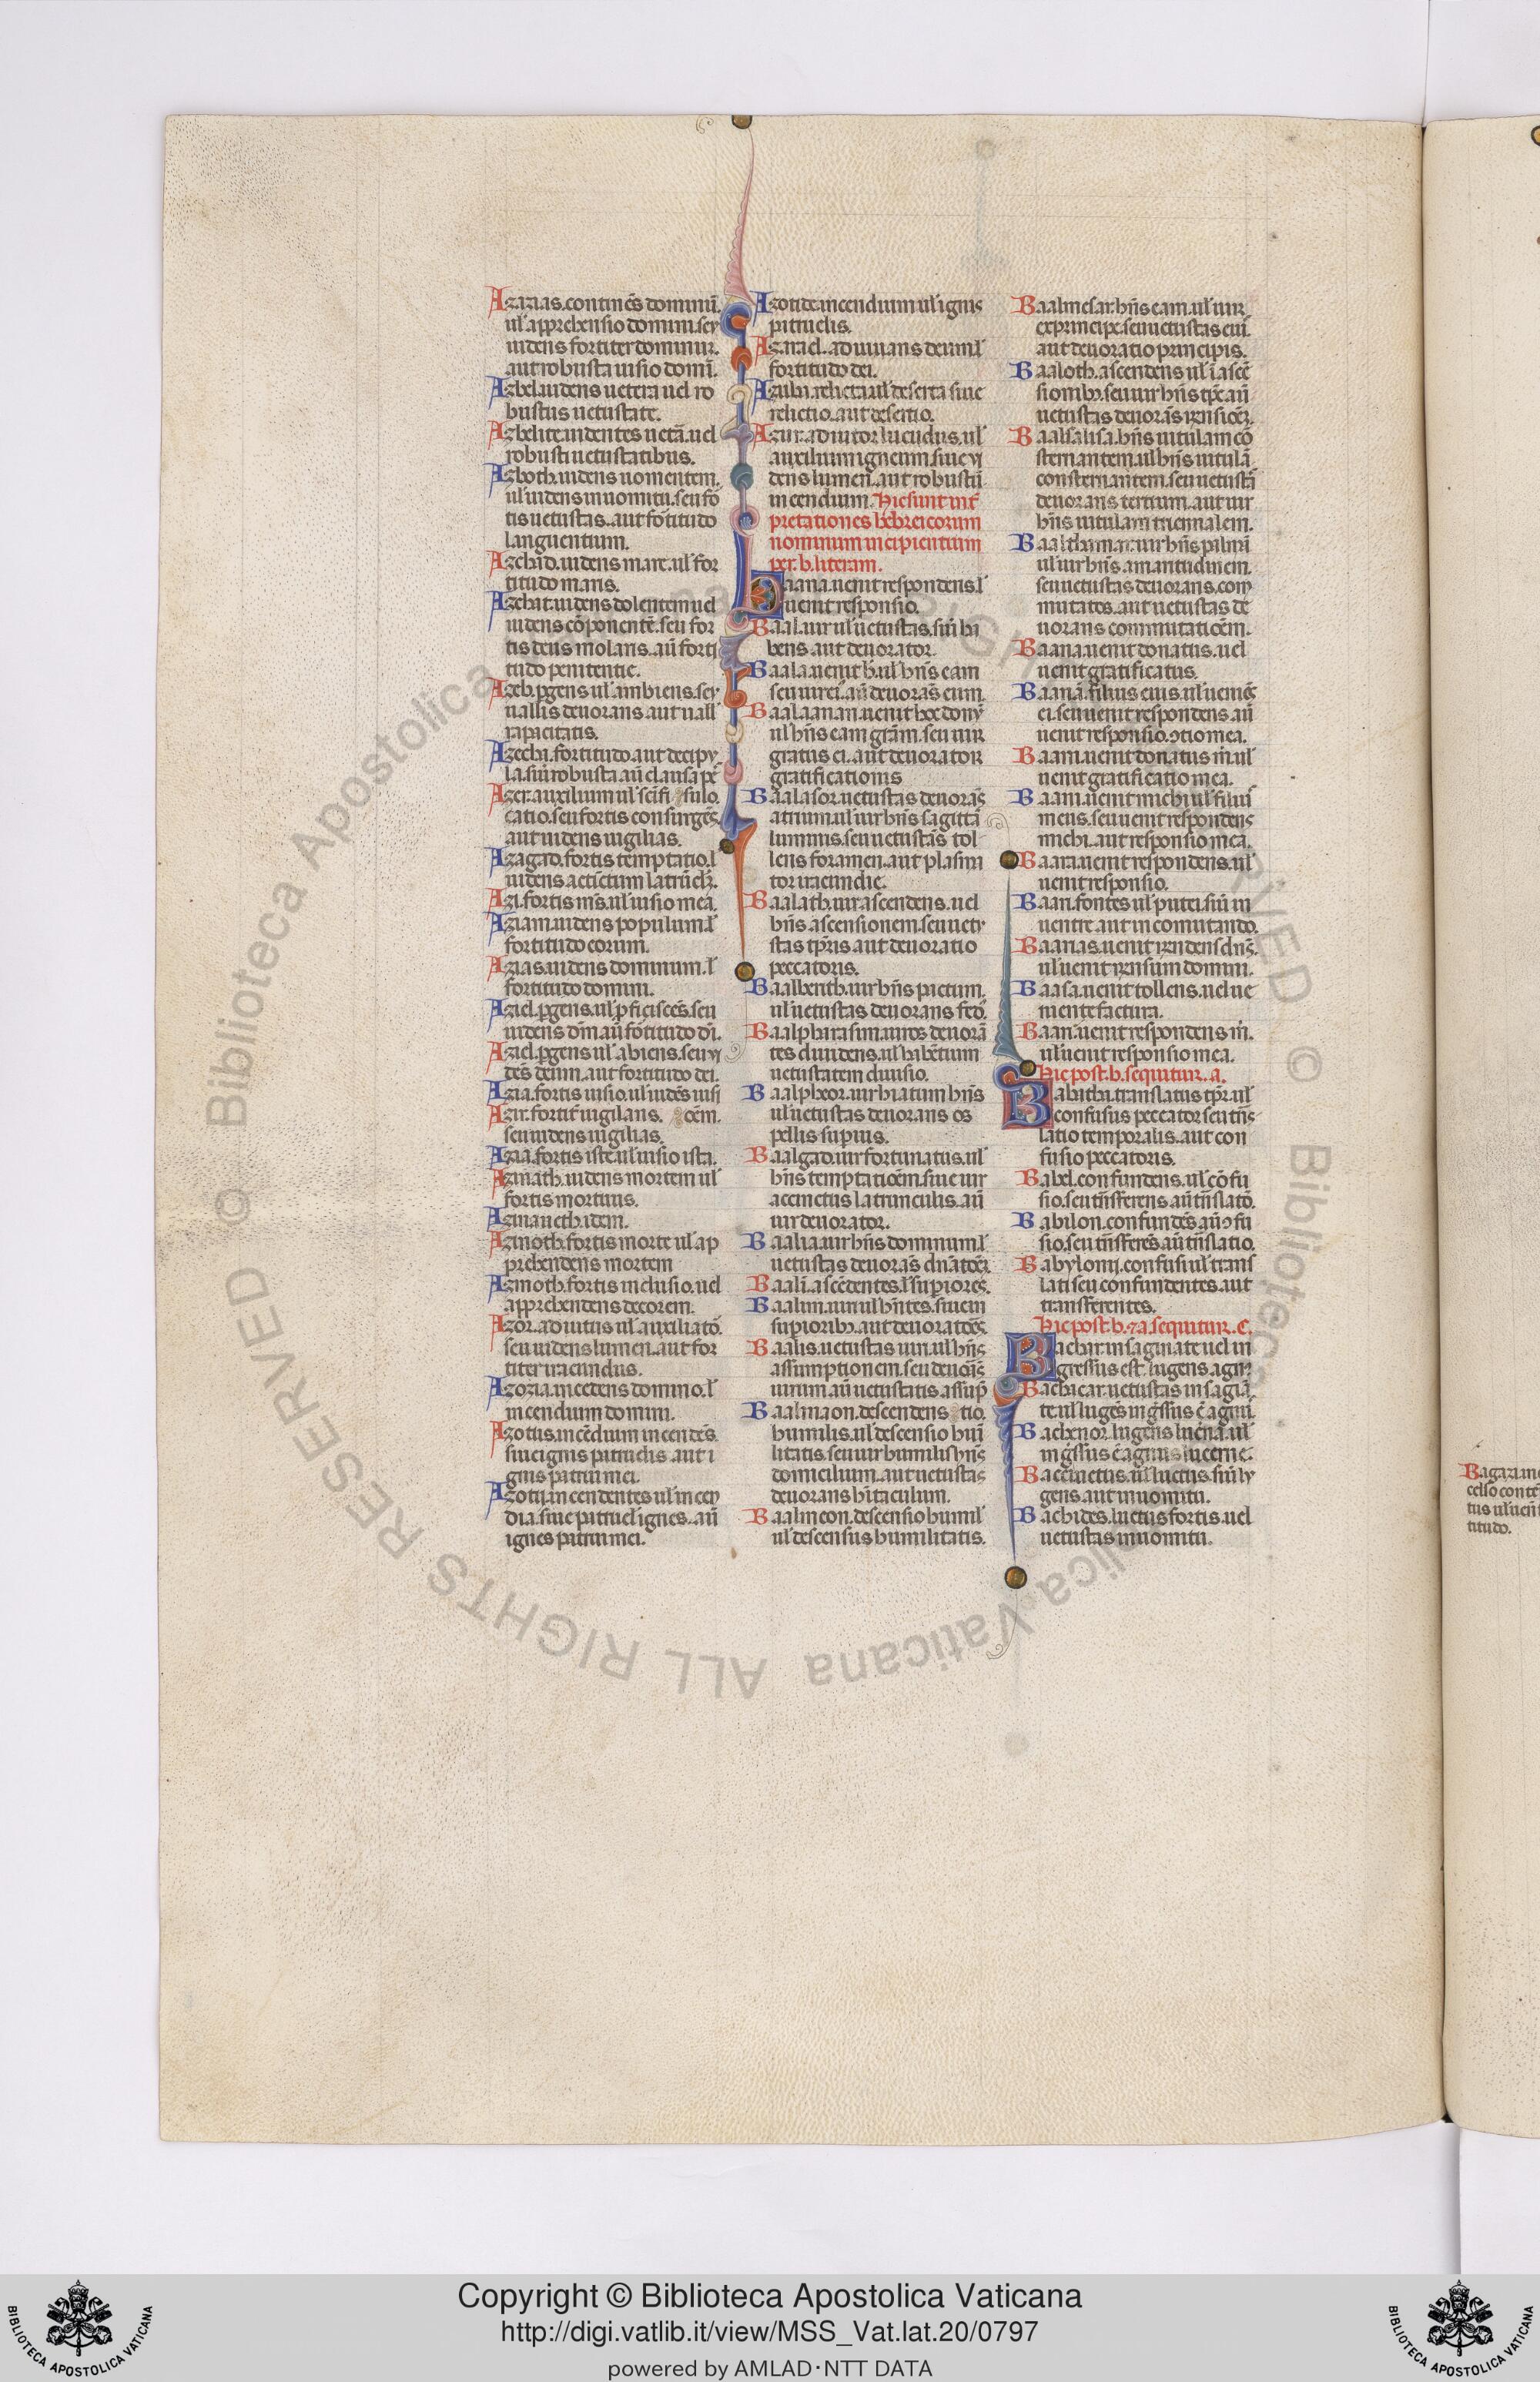 Azazias. continēs dominū.
ul' apprehensio domini. seu
uidens fortiter dominur.
aut robusta uisio domī.
Azbel. uidens uetera uel ro
bustus uetustate.
Azbelite. uidentes uetā. uel
robusti uetustatibus.
Azboth. uidens uomentem.
ul' uidens in uomitu. seu fō
tis uetustas. aut fōtitudo
languentium.
Azehad. uidens mare. ul' for
titudo maris.
Azebat. uidens dolentem uel
uidens cōponentē. seu for
tis deus molaris. aū forti
tudo penitentie.
Azeb. pgens ul' ambiens. seu
uallis deuorans. aut uall'
rapacitatis.
Azecha. fortitudo. aut decipu
la. siū robusta. aū clausa p̄c
Azer. auxilium ul' scīfi fulo.
catio. seu fortis consurgēs.
aut uidens uigilias.
Azagad. fortis temptatio. l'
uidens accīctum latrūclꝫ.
Azi. fortis m̄s. ul' uisio mea.
Aziam. uidens populum. l'
fortitudo eorum.
Azias. uidens dominum. l'
fortitudo domini.
Aziel. pgens. ul' pficiscēs. seu
uidens dm̄. aū fōtitudo dī.
Aziel. pgens ul' abiens. seu ui
dēs deum. aut fortitudo dei.
Azia. fortis uisio. ul' uidēs uisi
Azir. fortit' uigilans. oēm.
seu uidens uigilias.
Azia. fortis iste. ul' uisio ista.
Azmath. uidens mortem ul'
fortis mortuus.
Azmaueth. idem.
Azmoth. fortis morte ul' ap
prehendens mortem
Azmoth. fortis inclusio. uel
apprehendens decorem.
Azor. adiutus ul' auxiliatō.
seu uidens lumen. aut for
titer iracundus.
Azozia. incedens domino. l'
incendium domini.
Azotus. incēdium incendēs.
siue ignis patruelis. aut i
gnis patrui mei.
Azotij. incendentes ul' incen
dia. siue patruel' ignes. aū
ignes patrui mei.
Azotide. incendium ul' ignis
patruelis.
Azrael. adiuuans deum. l'
fortitudo dei.
Azuba. relicta ul' deserta siue
relictio. aut desertio.
Azur. adiutor lucidus. ul'
auxilium igneum. siue ui
dens lumen. aut robustū
incendium. Hic sunt int̄
pretationes hebreicorum
nominum incipientium
per. b. literam.
Baana. uenit respondens. l'
uenit responsio.
Baal. uir ul' uetustas. siū ha
bens. aut deuorator.
Baala. uenit h̄. ul' hn̄s eam
seu uir ei. aū deuorās eum.
Baalaanan. uenit hec donū
ul' hn̄s eam grām. seu uir
gratus ei. aut deuorator
gratificationis
Baalasor. uetustas deuorās
atrium. ul' uir hn̄s sagittā
luminis. seu uetustas tol
lens foramen. aut plasma
tor iracundie.
Baalath. uir ascendens. uel
hn̄s ascensionem. seu uetu
stas tp̄ris aut deuoratio
peccatoris.
Baalbenth. uir hn̄s pactum.
ul' uetustas deuorans fed'.
Baalpharasim. uires deuorā
tes diuidens. ul' habētium
uetustatem diuisio.
Baalpheor. uir hiatum hn̄s
ul' uetustas deuorans os
pellis supius.
Baalgad. uir fortunatus. ul'
hn̄s temptatioēm. siue uir
accinctus latrunculis. aū
uir deuorator.
Baalia. uir hn̄s dominum. l'
uetustas deuorās dn̄atoēꝫ.
Baali. ascēdentes. l' supiores.
Baalim. uiri ul' hn̄tes. siue in
supioribꝫ. aut deuoratoēs
Baalis. uetustas uiri. ul' hn̄s
assumptionem. seu deuorās
uirum. aū uetustatis assūp
Baalmaon. descendens tio.
humilis. ul' descensio hūi
litatis. seu uir humilis hn̄s
domicilium. aut uetustas
deuorans hītaculum.
Baalmeon. descensio humil'
ul' descensus humilitatis.
Baalmesar. hn̄s eam. ul' uir
ex principe. seu uetustas eūi
aut deuoratio principis.
Baaloth. ascendens ul' ī ascē
sionibꝫ. seu uir hn̄s tp̄e. aū
uetustas deuorās rn̄sioēꝫ.
Baalsalisa. hn̄s uitulam cō
sternantem. ul' hn̄s uitulā
consternantem. seu uetustā
deuorans tertium. aut uir
hn̄s uitulam triennalem.
Baalthamar. uir hn̄s palmā
ul' uir hn̄s. amaritudinem.
seu uetustas deuorans. com
mutatos. aut uetustas de
uorans commutatioēm.
Baana. uenit donatus. uel
uenit gratificatus.
Baanā. filius eius. ul' ueniēs
ei. seu uenit respondens aū
uenit responsio. ɔtio mea.
Baani. uenit donatus m̄. ul'
uenit gratificatio mea.
Baani. uenit michi ul' filius
meus. seu uenit respondens
michi. aut responsio mea.
Baara. uenit respondens. ul'
uenit responsio.
Baari. fontes ul' putei. siū in
uentre. aut in comitando.
Baarias. uenit rn̄dens dn̄s.
ul' uenit rn̄sum domini.
Baasa. uenit tollens. uel ue
niente factura.
Baari. uenit respondens m̄.
ul' uenit responsio mea.
Hic post. b. sequitur. a.
Babithi. translatus tp̄r. ul'
confusus peccator seu tn̄s
latio temporalis. aut con
fusio peccatoris.
Babel. confundens. ul' cōfu
sio. seu tn̄sferens aū tn̄slatō.
Babilon. confundēs aū ɔfu
sio. seu tn̄sferēs. aū tn̄slatio.
Babylonij. confusi ul' trans
lati seu confundentes. aut
transferentes.
Hic post. b. ⁊ a. sequitur. C.
Bachat. insaginate uel in
gressus est. lugens. agni
Bachacar. uetustas insagiā
te. ul' lugēs in gressus ē agnī.
Bachenor. lugens lucnā. ul'
ingr̄ssus ē agnus lucerne.
Baceinctus. ul' luctus. siū lu
gens. aut in uomitu.
Bachides. luctus fortis. uel
uetustas in uomitu.
celso con
titudo.
Copyright © Biblioteca Apostolica Vaticana
http://digi.vatlib.it/view/MSS_Vat.lat.20/0797
powered by AMLAD·NTT DATA
BIBLIOTECA APOSTOLICA VATICANA
BIBLIOTECA APOSTOLICA VATICANA
© Biblioteca Apostolica Vaticana ALL RIGHTS RESERVED